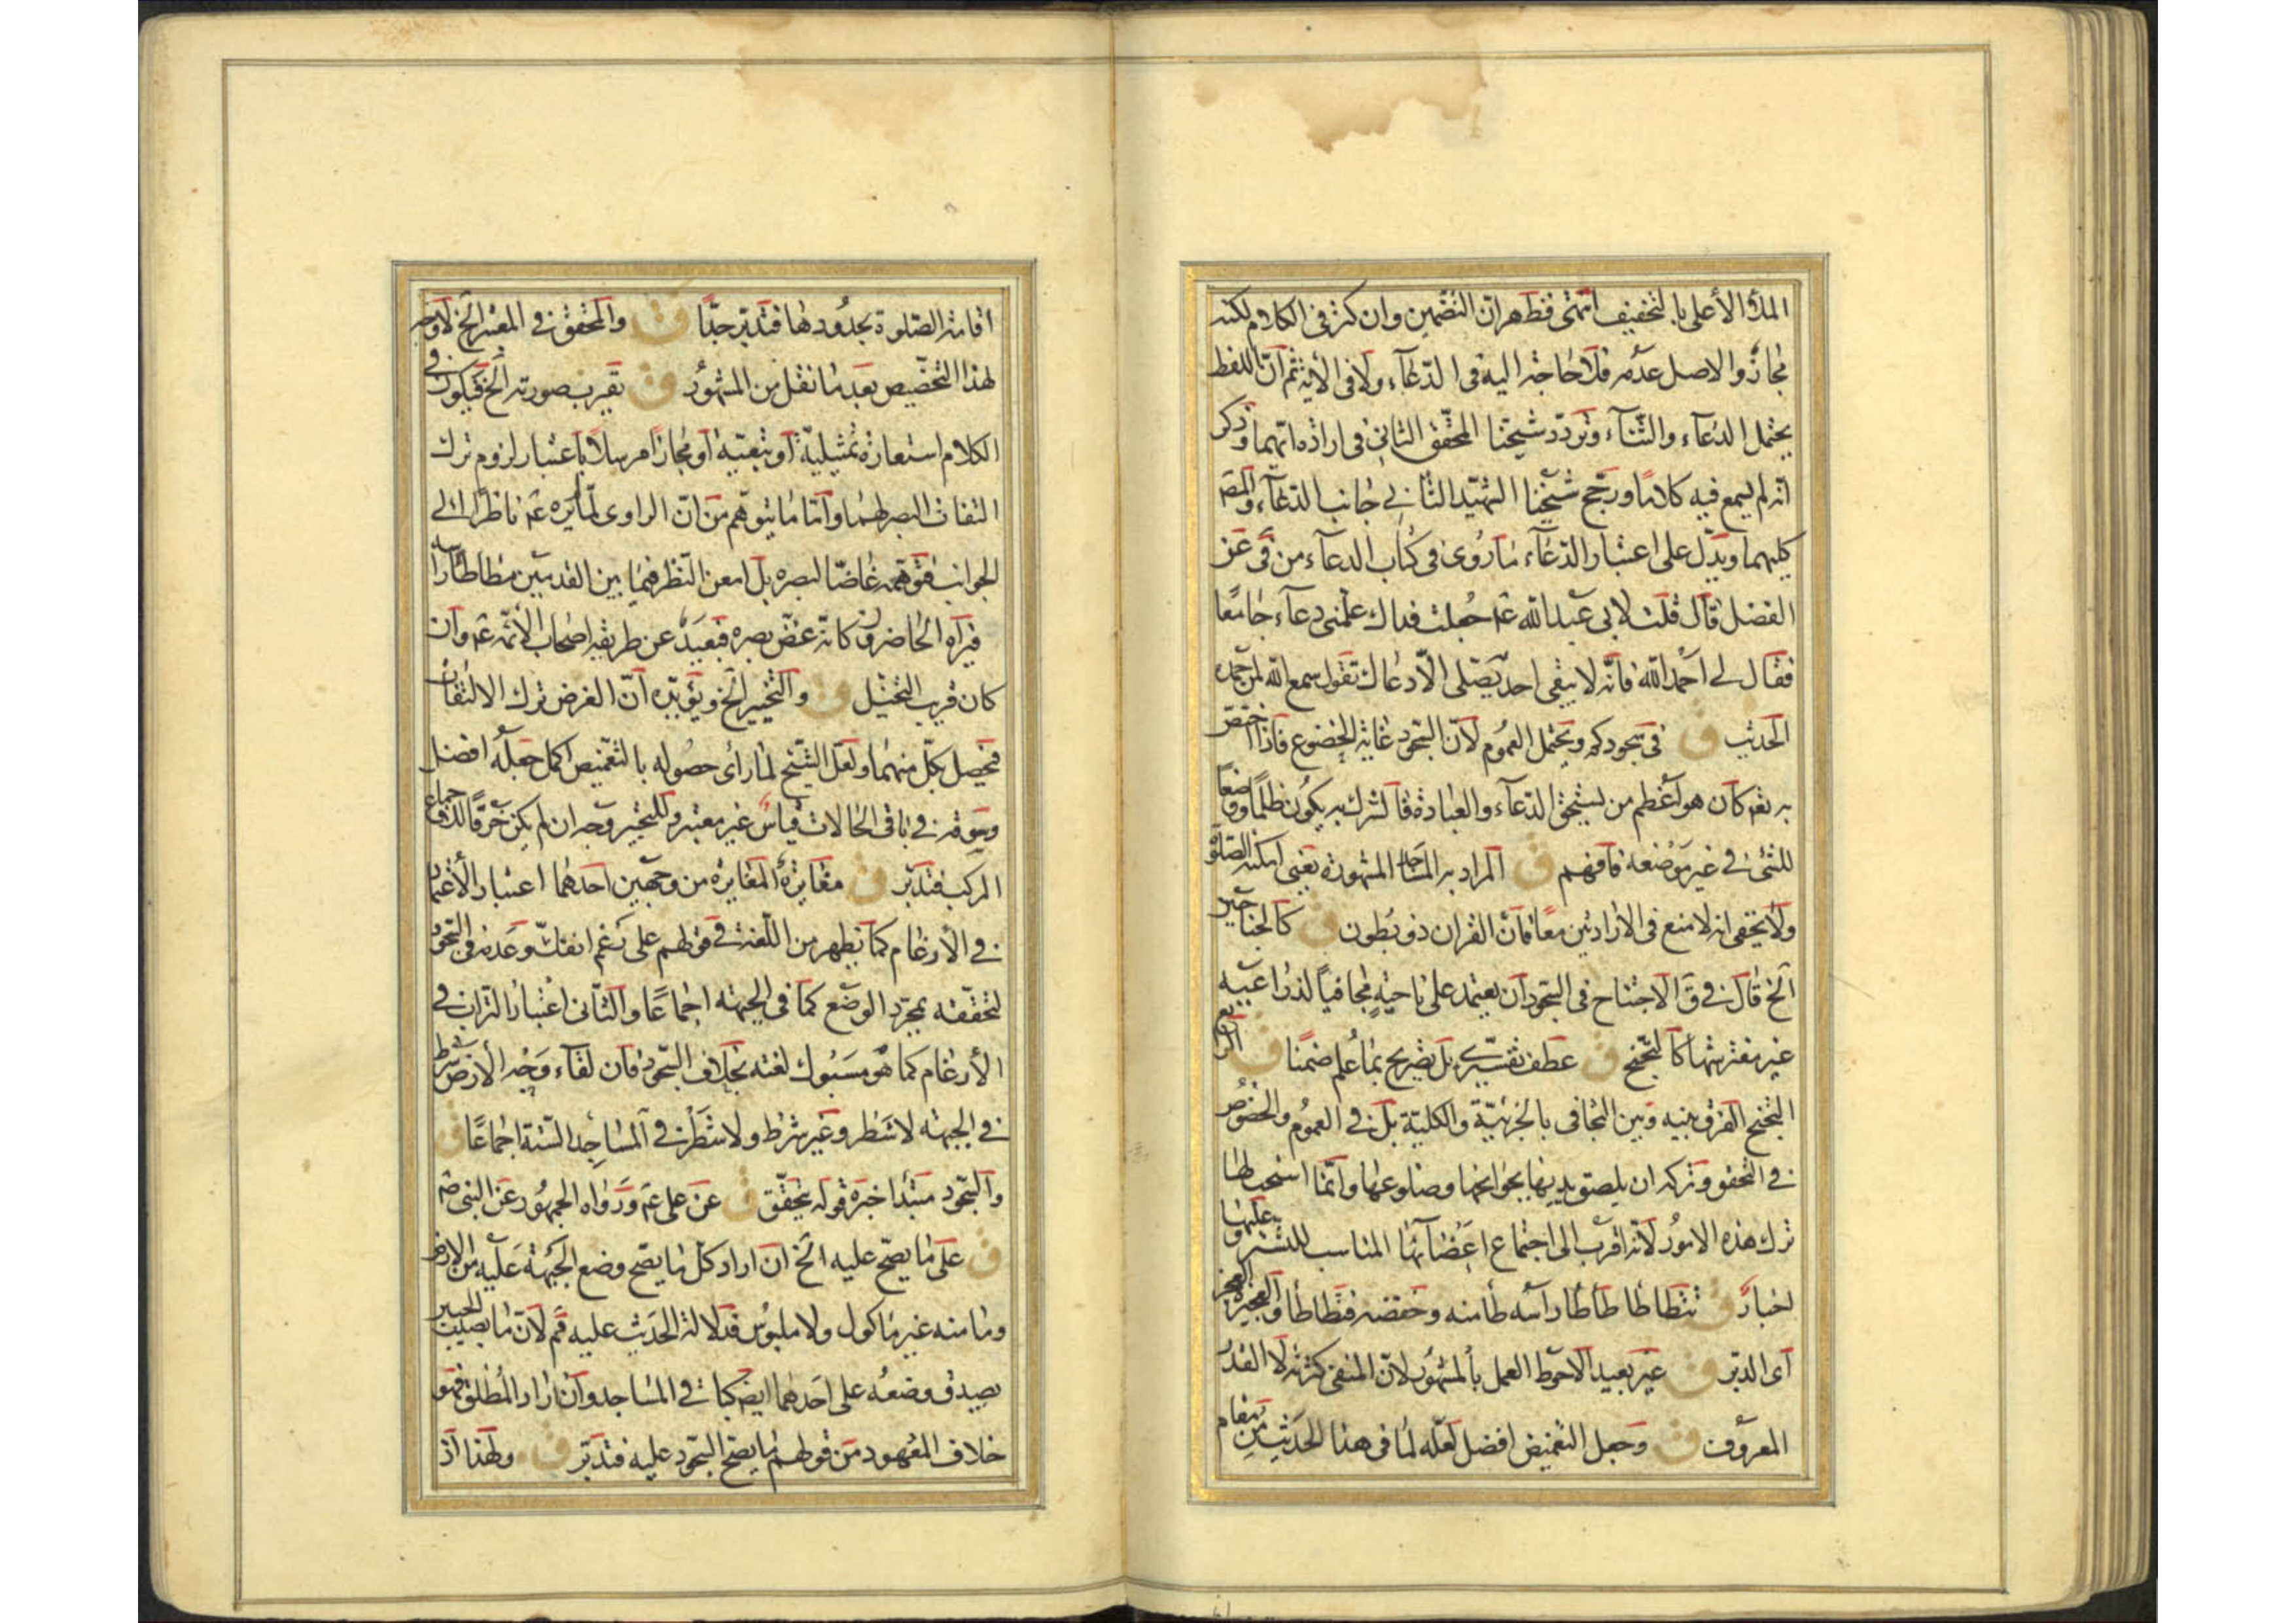 الملأ الأعلى بالتخفيف انتهى فظهر ان التضمين وان كثر فى الكلام لكنه
مجاز والاصل عدمه فلا حاجة اليه فى الدعاء ولا فى الأية ثم ان اللفظ
يحتمل الدعاء والثناء وتردد شيخنا المحقق الثانى فى ارادة ايهما وذكر
انه لم يسمع فيه كلاما ورجح شيخنا الشهيد الثانى جانب الدعاء
كليهما ويدل على اعتبار الدعاء ما روى فى كتاب الدعاء من فى عن
الفضل قال قلت لابى عبد الله عم جعلت فداك علمنى دعاء جامعا
فقال لى احمد الله فانه لا يبقى احد يصلى الا دعا لك تقول سمع الله لمن حمده
الحديث ق فى سجودكم ويحتمل العموم لان السجود غاية الخضوع فاذا اختص
به تعم كان هو اعظم من يستحق الدعاء والعبادة فالشرك به يكون ظلما ووضعا
للشئ فى غير موضعه فافهم ق المراد بر المساجد المشهورة يعنى امكنة الصلوة
ولا يخفى انه لا منع فى الارادتين معا فان القران ذو بطون ق كالجناحين
الخ قال فى ق الاجتناح فى السجود ان يعتمد على ناحيته مجافيا لذراعيه
غير مفترشهما كالتجنح ق عطف تفسيرى بل تصريح بما علم ضمنا ق
التجنح الفرق بينه وبين التجافى بالجزئية والكلية بل فى العموم والخصوص
فى التحقق وتركه ان يلصق يديها بجوانحها وضلوعها وانما استحب لها
ترك هذه الامور لانه اقرب الى اجتماع اعضائها المناسب للتستر عليها و
اخبار ق تتطاطا طأطأ راسه طامنه وخفضه فتطاطا والعجيزة العجز
اى الدبر ق غير بعيد الاحوط العمل بالمشهور لان المنفى كثرته لا القدر
المعروف ق وجعل التغميض افضل لعله لما فى هذا الحديث من
اقامة الصلوة بحدودها فتدبر جدا ق والمحقق فى المعتبر الخ لا وجه
لهذا التخصيص بعد ما نقل من المشهور ق تقرب صورته الخ فيكون فى
الكلام استعارة تمثيلية او تبعية او مجازا مرسلا باعتبار لزوم ترك
التفات البصر لهما واما ما يتوهم من ان الراوى لما يره عم ناظرا الى
الجوانب فتوهمه غاضا لبصره بل امعن النظر فيما بين القدمين مطاطأ راسه
فيراه الحاضرون كانه غض بصره فبعيد عن طريقة اصحاب الأئمة عم وان
كان قريب التخيل ق والتخيير الخ ويؤيده ان الغرض ترك الالتفات
فحصل بكل منهما ولعل الشيخ لما رأى حصوله بالتغميض اكمل جعله افضل
وسوقه فى باقى الحالات قياس غير معتبر وللتخيير وجه ان لم يكن خرقا للاجماع
المركب فتدبر ق مغايرة المغايرة من وجهين احدهما اعتبار الأعتماد
فى الأرغام كما يظهر من اللغة فى قولهم على رغم انفك وعدمه فى السجود
لتحققه بمجرد الوضع كما فى الجبهة اجماعا والثانى اعتبار التراب فى
الأرغام كما هو مسبوك لغته بخلاف السجود فان لقاء وجه الأرض شرط
فى الجبهة لا شطر وغير شرط ولا شطر فى المساجد الستة اجماعا ق
والسجود مبتدأ خبره قوله يتحقق ق عن على عم ورواه الجمهور عن النبى صم
ق على ما يصح عليه الخ ان اراد كل ما يصح وضع الجبهة عليه من الارض
وما منه غير ماكول ولا ملبوس فدلالة الحديث عليه فم لان ما يصيب الجبين
يصدق وضعه على احدهما ايضا كما فى المساجد وان اراد المطلق فهو
خلاف المعهود من قولهم ما يصح السجود عليه فتدبر ق ولهذا اذ